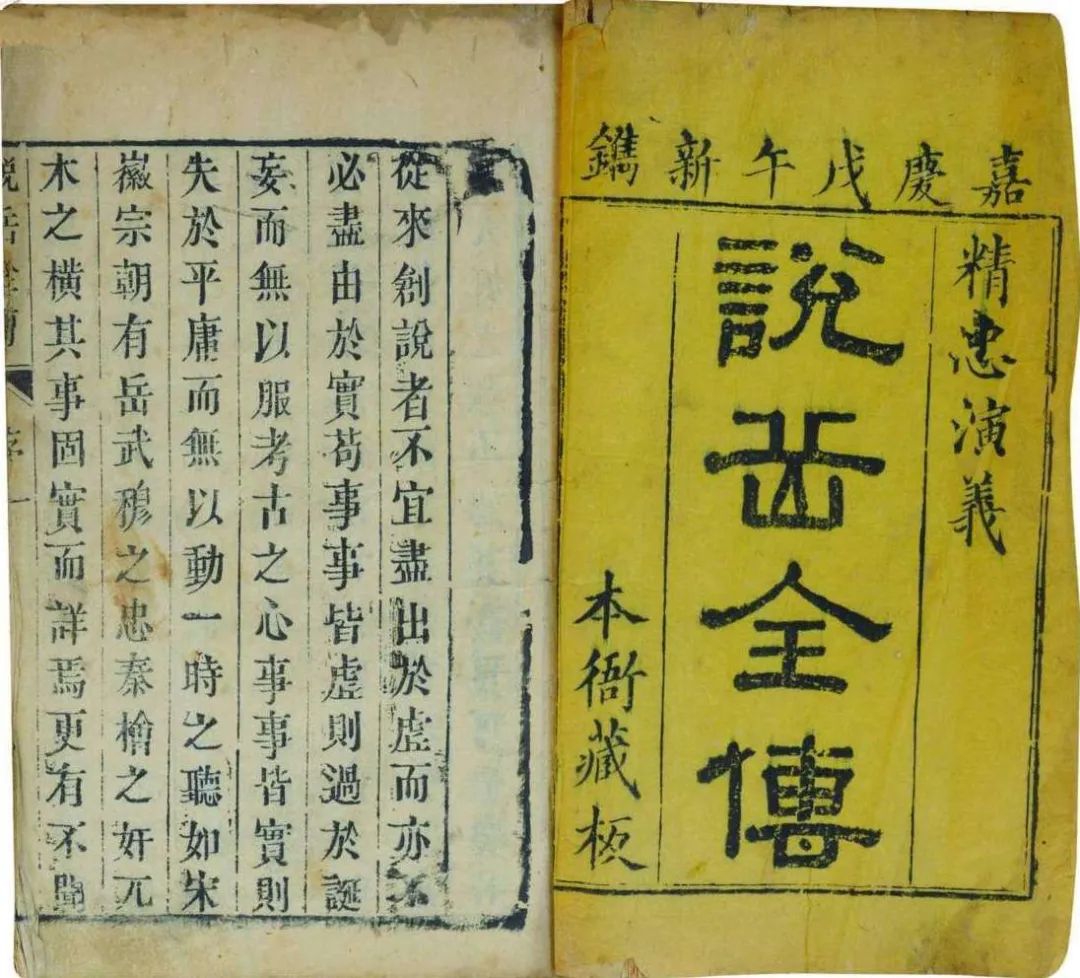 嘉慶戊午新鐫
精忠演義
說岳全傳
本衙藏板
從來創說者不宜盡出於虛而亦不
必盡由於實苟事事皆虛則過於誕
妄而無以服考古之心事事皆實則
失於平庸而無以動一時之聽如宋
徽宗朝有岳武穆之忠秦檜之奸兀
朮之橫其事固實而詳焉更有不聞